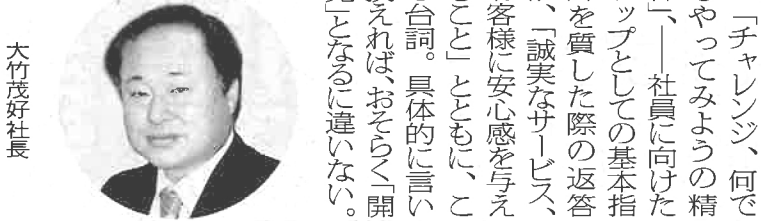 「チャレンジ、何で
もやってみようの精
」、――社員に向けた
ップとしての基本指
を質した際の返答
、「誠実なサービス、
客様に安心感を与え
こと」とともに、こ
の台詞。具体的に言い
換えれば、おそらく「開
」となるに違いない。
大竹茂好社長